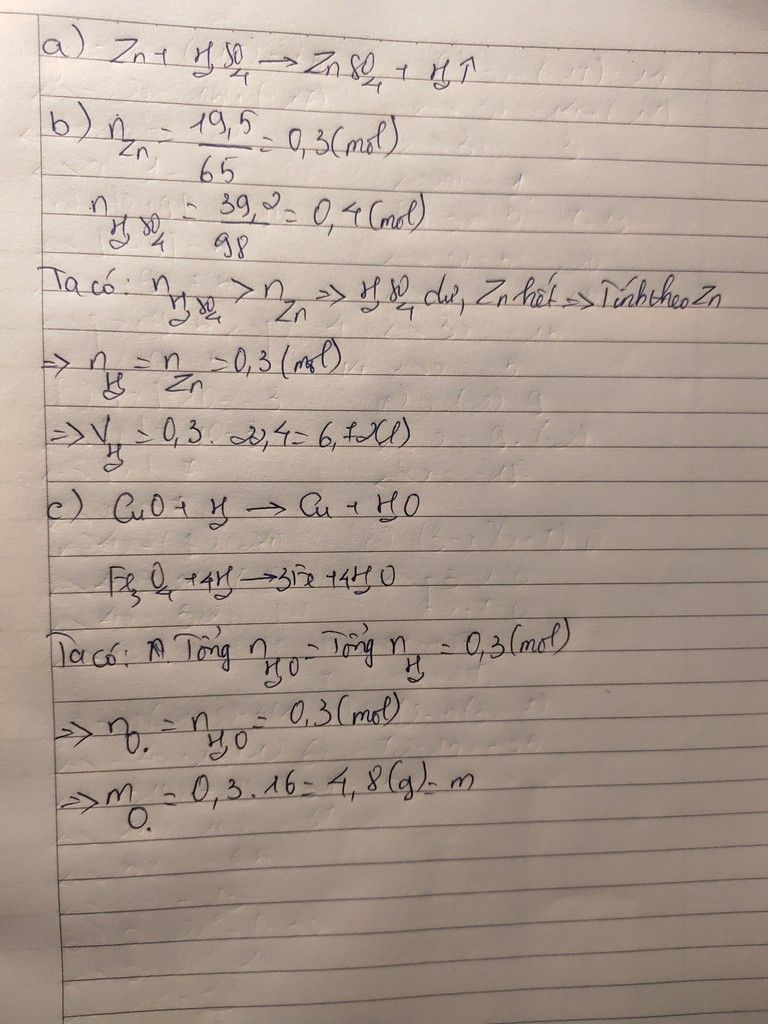 a) Zn + H₂SO₄ → ZnSO₄ + H₂↑
b) n_Zn = 19,5/65 = 0,3 (mol)
n_H₂SO₄ = 39,2/98 = 0,4 (mol)
Ta có: n_H₂SO₄ > n_Zn => H₂SO₄ dư, Zn hết => Tính theo Zn
=> n_H₂ = n_Zn = 0,3 (mol)
=> V_H₂ = 0,3 . 22,4 = 6,72(l)
c) CuO + H₂ → Cu + H₂O
Fe₃O₄ + 4H₂ → 3Fe + 4H₂O
Ta có: Tổng n_H₂O = Tổng n_H₂ = 0,3 (mol)
=> n_O. = n_H₂O = 0,3 (mol)
=> m_O. = 0,3 . 16 = 4,8 (g) = m